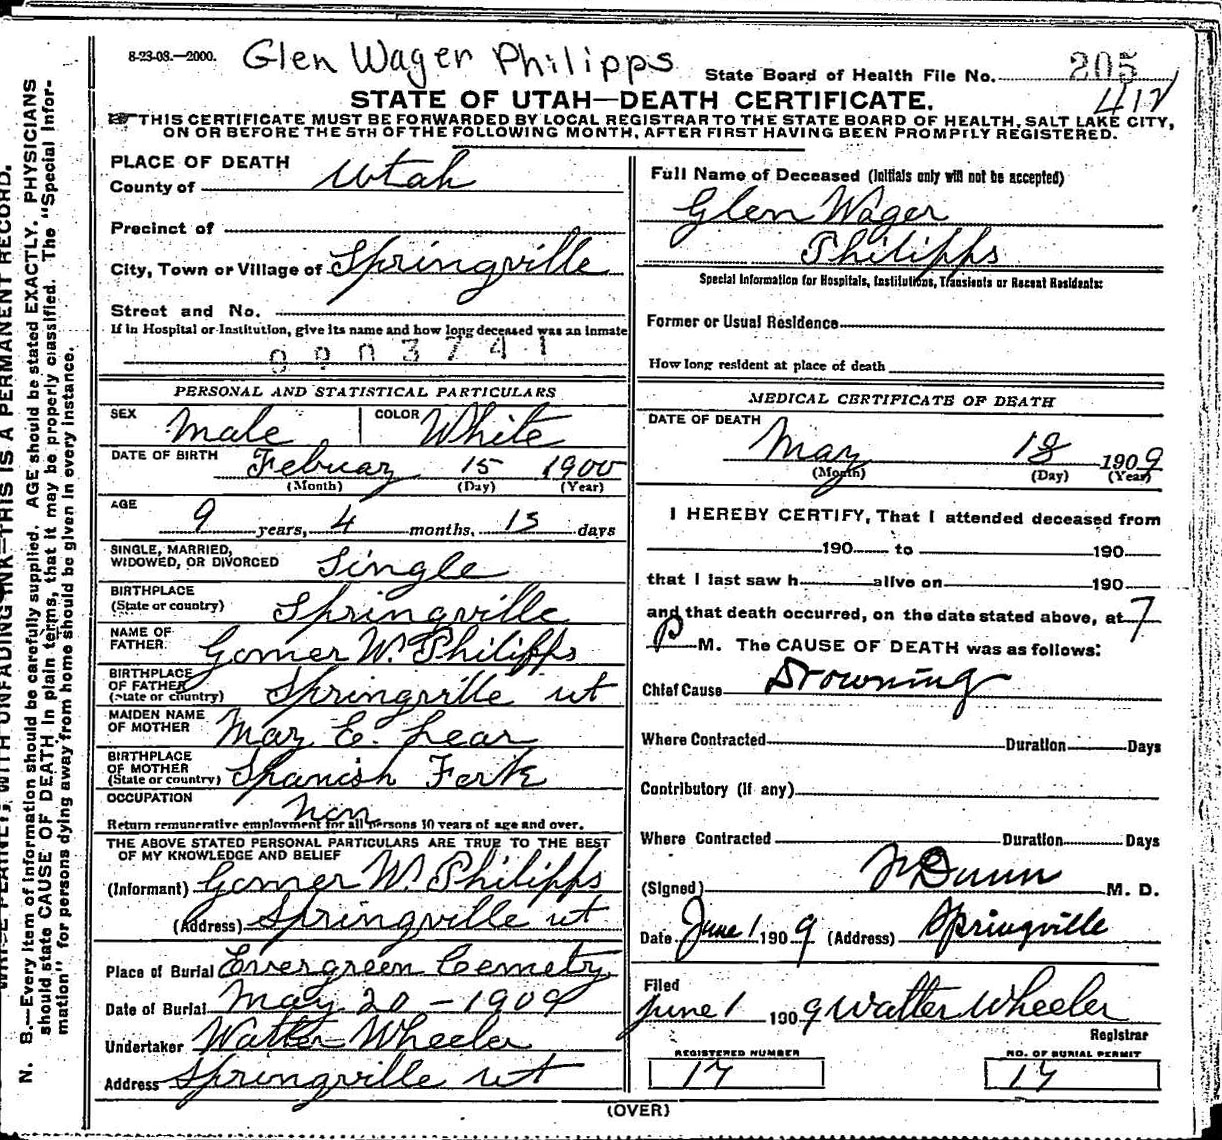 8-23-08.—2000. Glen Wager Philipps
State Board of Health File No. 205
412
STATE OF UTAH—DEATH CERTIFICATE.
THIS CERTIFICATE MUST BE FORWARDED BY LOCAL REGISTRAR TO THE STATE BOARD OF HEALTH, SALT LAKE CITY,
ON OR BEFORE THE 5TH OF THE FOLLOWING MONTH, AFTER FIRST HAVING BEEN PROMPTLY REGISTERED.
PLACE OF DEATH
County of Utah
Precinct of
City, Town or Village of Springville
Street and No.
If in Hospital or Institution, give its name and how long deceased was an inmate
0903741
PERSONAL AND STATISTICAL PARTICULARS
SEX Male COLOR White
DATE OF BIRTH Februay 15 1900
(Month) (Day) (Year)
AGE
9 years, 4 months, 15 days
SINGLE, MARRIED,
WIDOWED, OR DIVORCED Single
BIRTHPLACE
(State or country) Springville
NAME OF
FATHER Gomer W. Philipps
BIRTHPLACE
OF FATHER
(State or country) Springville ut
MAIDEN NAME
OF MOTHER May E. Lear
BIRTHPLACE
OF MOTHER
(State or country) Spanish Fork
OCCUPATION non
Return remunerative employment for all persons 10 years of age and over.
THE ABOVE STATED PERSONAL PARTICULARS ARE TRUE TO THE BEST
OF MY KNOWLEDGE AND BELIEF
(Informant) Gomer W. Philipps
(Address) Springville ut
Place of Burial Evergreen Cemetry
Date of Burial May 20 – 1909
Undertaker Walter Wheeler
Address Springville ut
Full Name of Deceased (Initials only will not be accepted)
Glen Wager
Philipps
Special Information for Hospitals, Institutions, Transients or Recent Residents:
Former or Usual Residence
How long resident at place of death
MEDICAL CERTIFICATE OF DEATH
DATE OF DEATH
May 18 1909
(Month) (Day) (Year)
I HEREBY CERTIFY, That I attended deceased from
190 to 190
that I last saw h alive on 190
and that death occurred, on the date stated above, at 7
P M. The CAUSE OF DEATH was as follows:
Chief Cause Drowning
Where Contracted Duration Days
Contributory (If any)
Where Contracted Duration Days
(Signed) Dunn M. D.
Date June 1 1909 (Address) Springville
Filed
June 1 1909 Walter Wheeler
Registrar
REGISTERED NUMBER NO. OF BURIAL PERMIT
17 17
(OVER)
N. B.—Every item of information should be carefully supplied. AGE should be stated EXACTLY. PHYSICIANS
should state CAUSE OF DEATH in plain terms, that it may be properly classified. The "Special Infor-
mation" for persons dying away from home should be given in every instance.
WITH UNFADING INK—THIS IS A PERMANENT RECORD.